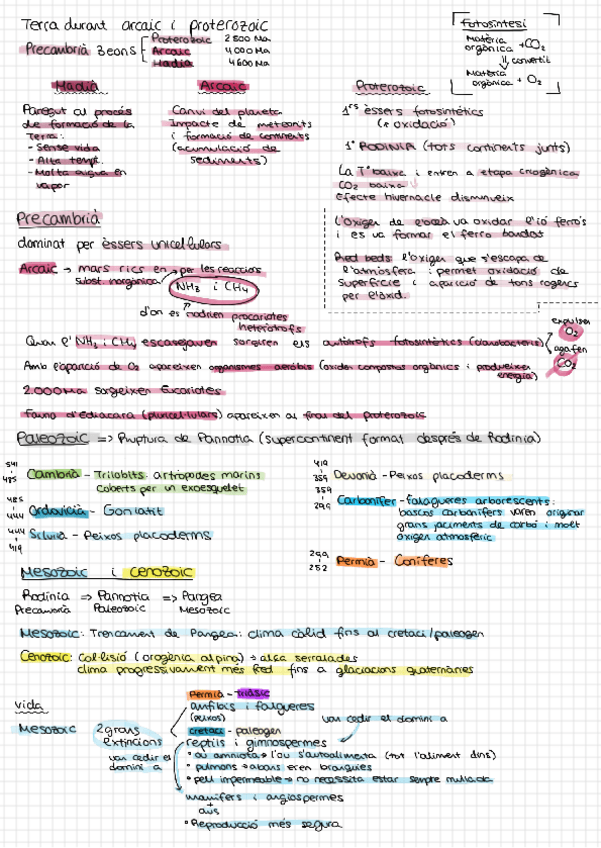 Terra durant arcaic i proterozoic
Precambrià 3 eons
Proterozoic 2500 Ma
Arcaic 4000 Ma
Hadià 4600 Ma
Fotosíntesi
Matèria orgànica + CO2
convertir
Matèria orgànica + O2
Hadià
Paregut al procés
de formació de la
Terra:
- Sense vida
- Alta temp.
- Molta aigua en
vapor
Arcaic
Canvi del planeta
Impacte de meteorits
i formació de continents
(acumulació de
sediments)
Proterozoic
1ers éssers fotosintètics
(+ oxidació)
1a RODINIA (tots continents junts)
La Tª baixa i entren a etapa criogènica
CO2 baixa ↓
Efecte hivernacle disminueix
L'oxigen de l'oceà va oxidar l'ió ferrós
i es va formar el ferro bandat
Red beds: l'oxigen que s'escapa de
l'atmosfera i permet oxidació de
superfície i aparició de tons rogencs
per l'òxid.
Precambrià
dominat per éssers unicel·lulars
Arcaic → mars rics en → per les reaccions
subst. inorgànica
NH3 i CH4
d'on es nodrien procariotes
heteròtrofs
Quan l'NH3 i CH4 escassejaven sorgiren els autòtrofs fotosintètics (cianobacteris)
expulsen
O2
agafen
CO2
Amb l'aparició de O2 apareixen organismes aerobis (oxiden compostos orgànics i produeixen
energia)
2.000 Ma sorgeixen Eucariotes
Fauna d'Ediacara (pluricel·lulars) apareixen al final del Proterozoic
Paleozoic => Ruptura de Pannotia (supercontinent format després de Rodinia)
541
485
Cambrià - Trilobits: artròpodes marins
coberts per un exoesquelet
485
444
Ordovicià - Goniatit
444
419
Silurià - Peixos placoderms
419
359
Devonià - Peixos placoderms
359
299
Carbonífer - falagueres arborescents:
boscos carbonífers varen originar
grans jaciments de carbó i molt
oxigen atmosfèric
299
252
Permià - Coníferes
Mesozoic i Cenozoic
Rodinia => Pannotia => Pangea
Precambrià Paleozoic Mesozoic
Mesozoic: Trencament de Pangea: clima càlid fins al cretaci/paleogen
Cenozoic: Col·lisió (orogènia alpina) → alça serralades
clima progressivament més fred fins a glaciacions quaternàries
vida
Mesozoic
2 grans
extincions
van cedir el
domini a
Permià - triàsic
amfibis i falgueres
(peixos)
van cedir el domini a
cretaci - paleogen
reptils i gimnospermes
• ou amniota → l'ou s'autoalimenta (tot l'aliment dins)
• pulmons → abans eren branquies
• pell impermeable → no necessita estar sempre mullada
mamífers i angiospermes
+
aus
• Reproducció més segura